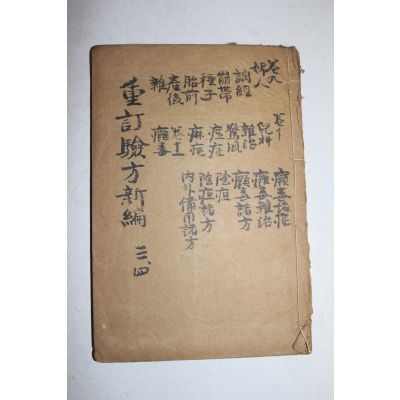 卷九
婦人
調經
崩帶
種子
胎前
產後
雜
卷十
兒科
雜治
驚風
痘症
麻症
卷十一
癰毒
癰毒諸症
癰毒雜治
癰毒諸方
陰疽
陰疽諸方
內外備用諸方
重訂驗方新編 三、四